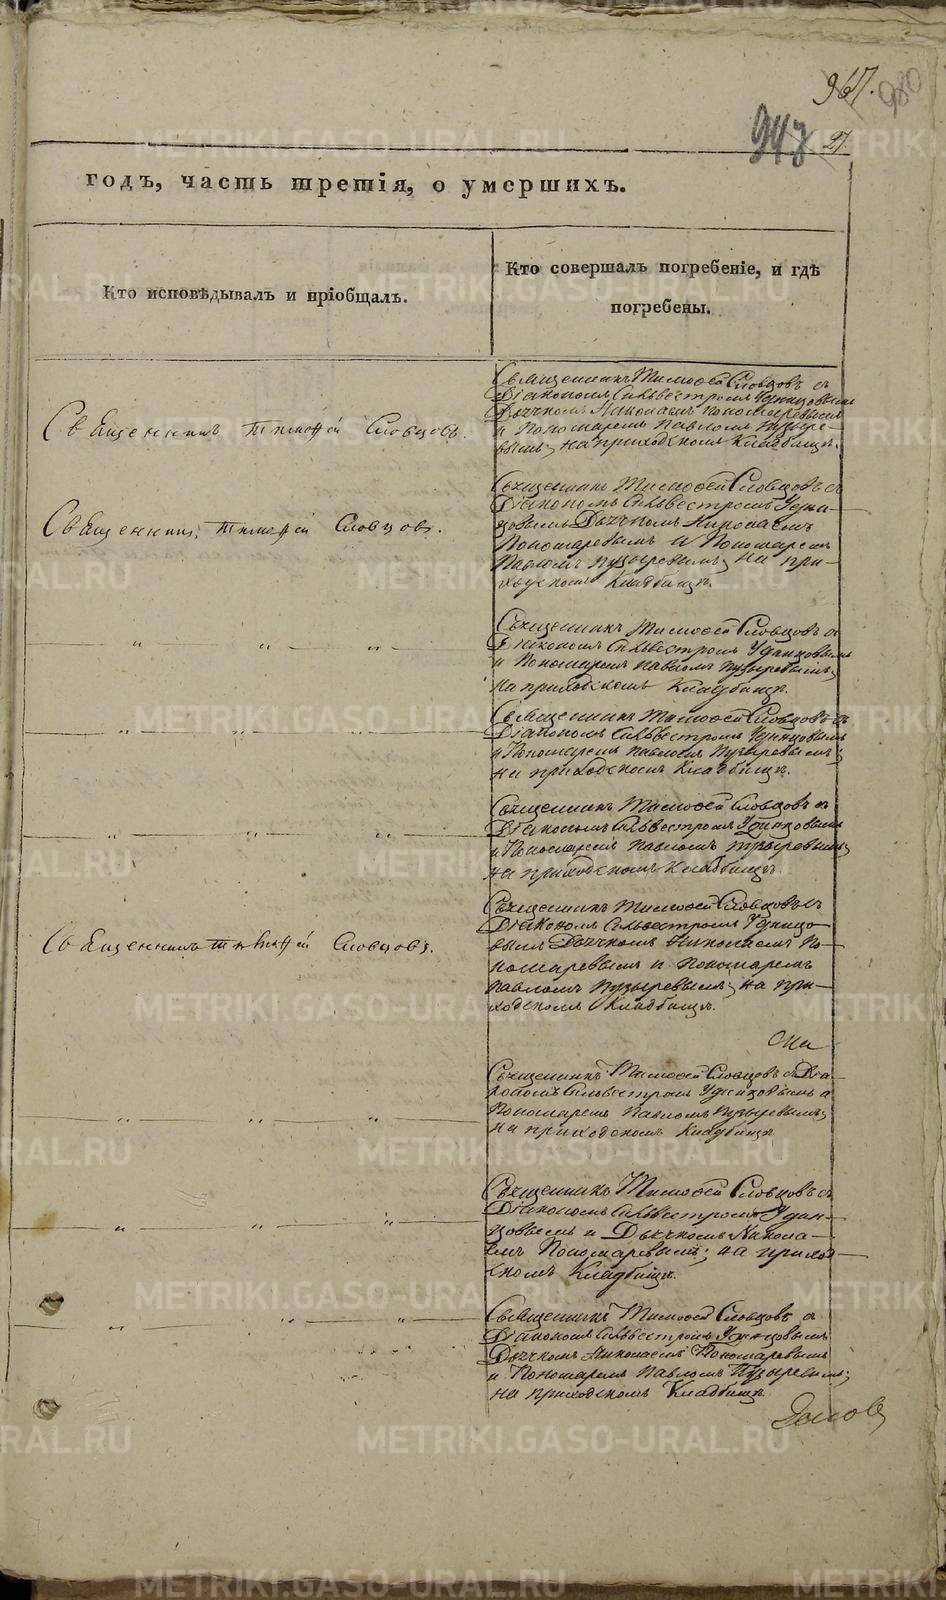 967.
980
948
27.
годъ, часть третія, о умершихъ.
Кто исповѣдывалъ и пріобщалъ.
Кто совершалъ погребеніе, и гдѣ
погребены.
Священникъ Тимоѳей Словцовъ.
Священникъ Тимоѳей Словцовъ с
Діакономъ Сильвестромъ Удинцовымъ
Дьячкомъ Николаемъ Пономаревымъ
и Пономаремъ Павломъ Пузыре-
вымъ; на приходскомъ Кладбищѣ.
Священникъ Тимоѳей Словцовъ.
Священникъ Тимоѳей Словцовъ с
Діакономъ Сильвестромъ Удин-
цовымъ Дьячкомъ Николаемъ
Пономаревымъ и Пономаремъ
Павломъ Пузыревымъ; на при-
ходскомъ Кладбищѣ.
— " — " — " —
Священникъ Тимоѳей Словцовъ с
Діакономъ Сильвестромъ Удинцовымъ
и Пономаремъ Павломъ Пузыревымъ;
на приходскомъ Кладбищѣ.
— " — " — " —
Священникъ Тимоѳей Словцовъ с
Діакономъ Сильвестромъ Удинцовымъ
и Пономаремъ Павломъ Пузыревымъ;
на приходскомъ Кладбищѣ.
— " — " — " —
Священникъ Тимоѳей Словцовъ с
Діакономъ Сильвестромъ Удинцовымъ
и Пономаремъ Павломъ Пузыревымъ;
на приходскомъ Кладбищѣ.
Священникъ Тимоѳей Словцовъ.
Священникъ Тимоѳей Словцовъ с
Діакономъ Сильвестромъ Удинцо-
вымъ Дьячкомъ Николаемъ По-
номаревымъ и Пономаремъ
Павломъ Пузыревымъ; на при-
ходскомъ Кладбищѣ.
— " — " — " —
Священникъ Тимоѳей Словцовъ с Діа-
кономъ Сильвестромъ Удинцовымъ и
Пономаремъ Павломъ Пузыревымъ;
на приходскомъ Кладбищѣ
— " — " — " —
Священникъ Тимоѳей Словцовъ с
Діакономъ Сильвестромъ Удин-
цовымъ и Дьячкомъ Никола-
емъ Пономаревымъ; на приход-
скомъ Кладбищѣ.
— " — " — " —
Священникъ Тимоѳей Словцовъ с
Діакономъ Сильвестромъ Удинцовымъ
Дьячкомъ Николаемъ Пономаревымъ
и Пономаремъ Павломъ Пузыревымъ;
на приходскомъ Кладбищѣ
METRIKI.GASO-URAL.RU